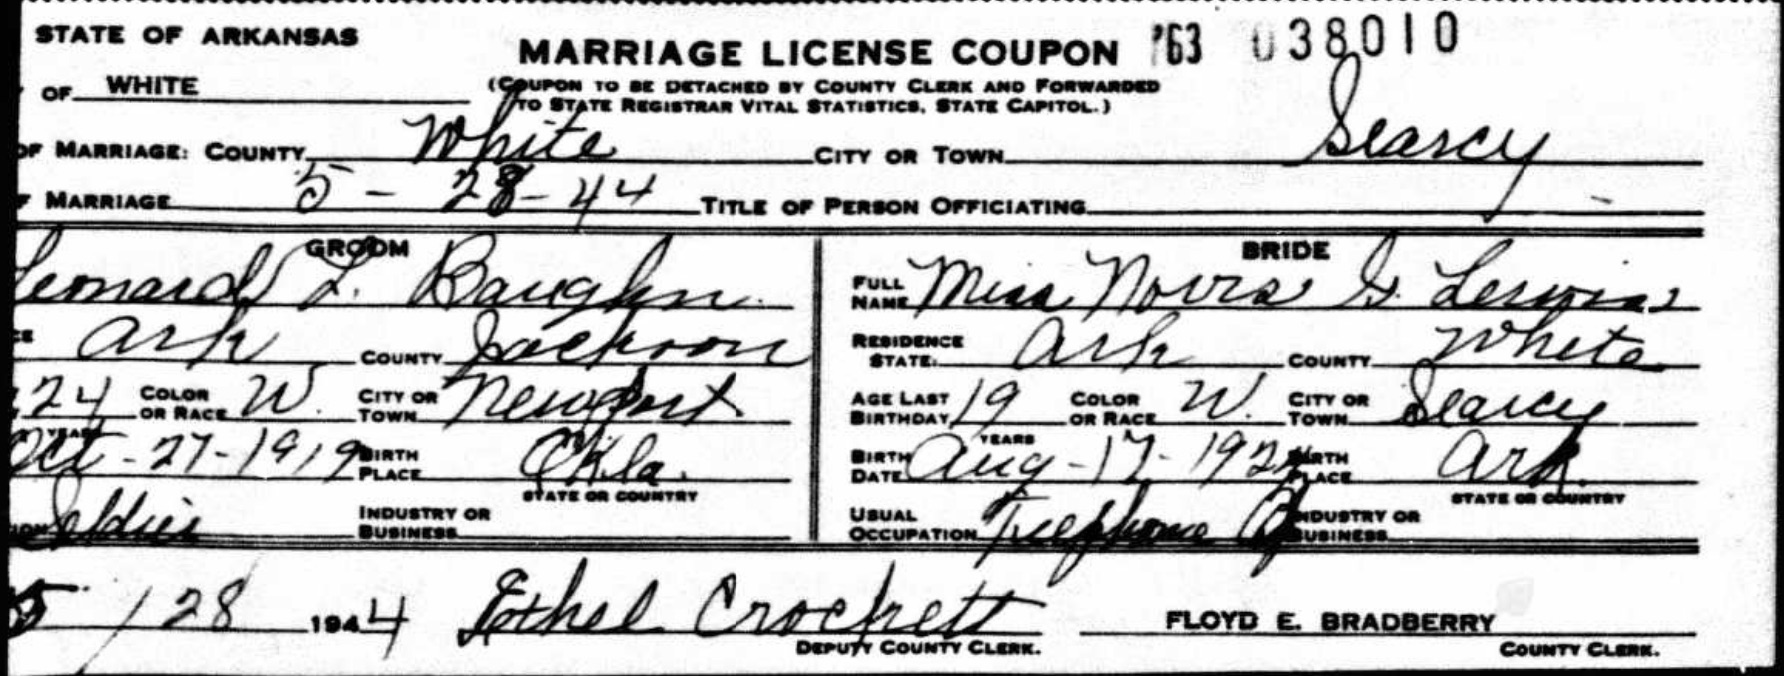 STATE OF ARKANSAS
MARRIAGE LICENSE COUPON '63 038010
OF WHITE
(COUPON TO BE DETACHED BY COUNTY CLERK AND FORWARDED
TO STATE REGISTRAR VITAL STATISTICS, STATE CAPITOL.)
OF MARRIAGE: COUNTY White CITY OR TOWN Searcy
MARRIAGE 5 - 28-44 TITLE OF PERSON OFFICIATING
GROOM BRIDE
Leonard L. Baughn FULL NAME Miss Norra G. 
Ark COUNTY Jackson RESIDENCE STATE: Ark COUNTY White
24 COLOR OR RACE W. CITY OR TOWN Newport AGE LAST BIRTHDAY 19 YEARS COLOR OR RACE W. CITY OR TOWN Searcy
Oct-27-1919 BIRTH PLACE Okla. STATE OR COUNTRY BIRTH DATE Aug-17-1924 BIRTH PLACE Ark. STATE OR COUNTRY
Soldier INDUSTRY OR BUSINESS USUAL OCCUPATION Telephone Op INDUSTRY OR BUSINESS
5/28 1944 Ethel Crockett FLOYD E. BRADBERRY
DEPUTY COUNTY CLERK. COUNTY CLERK.